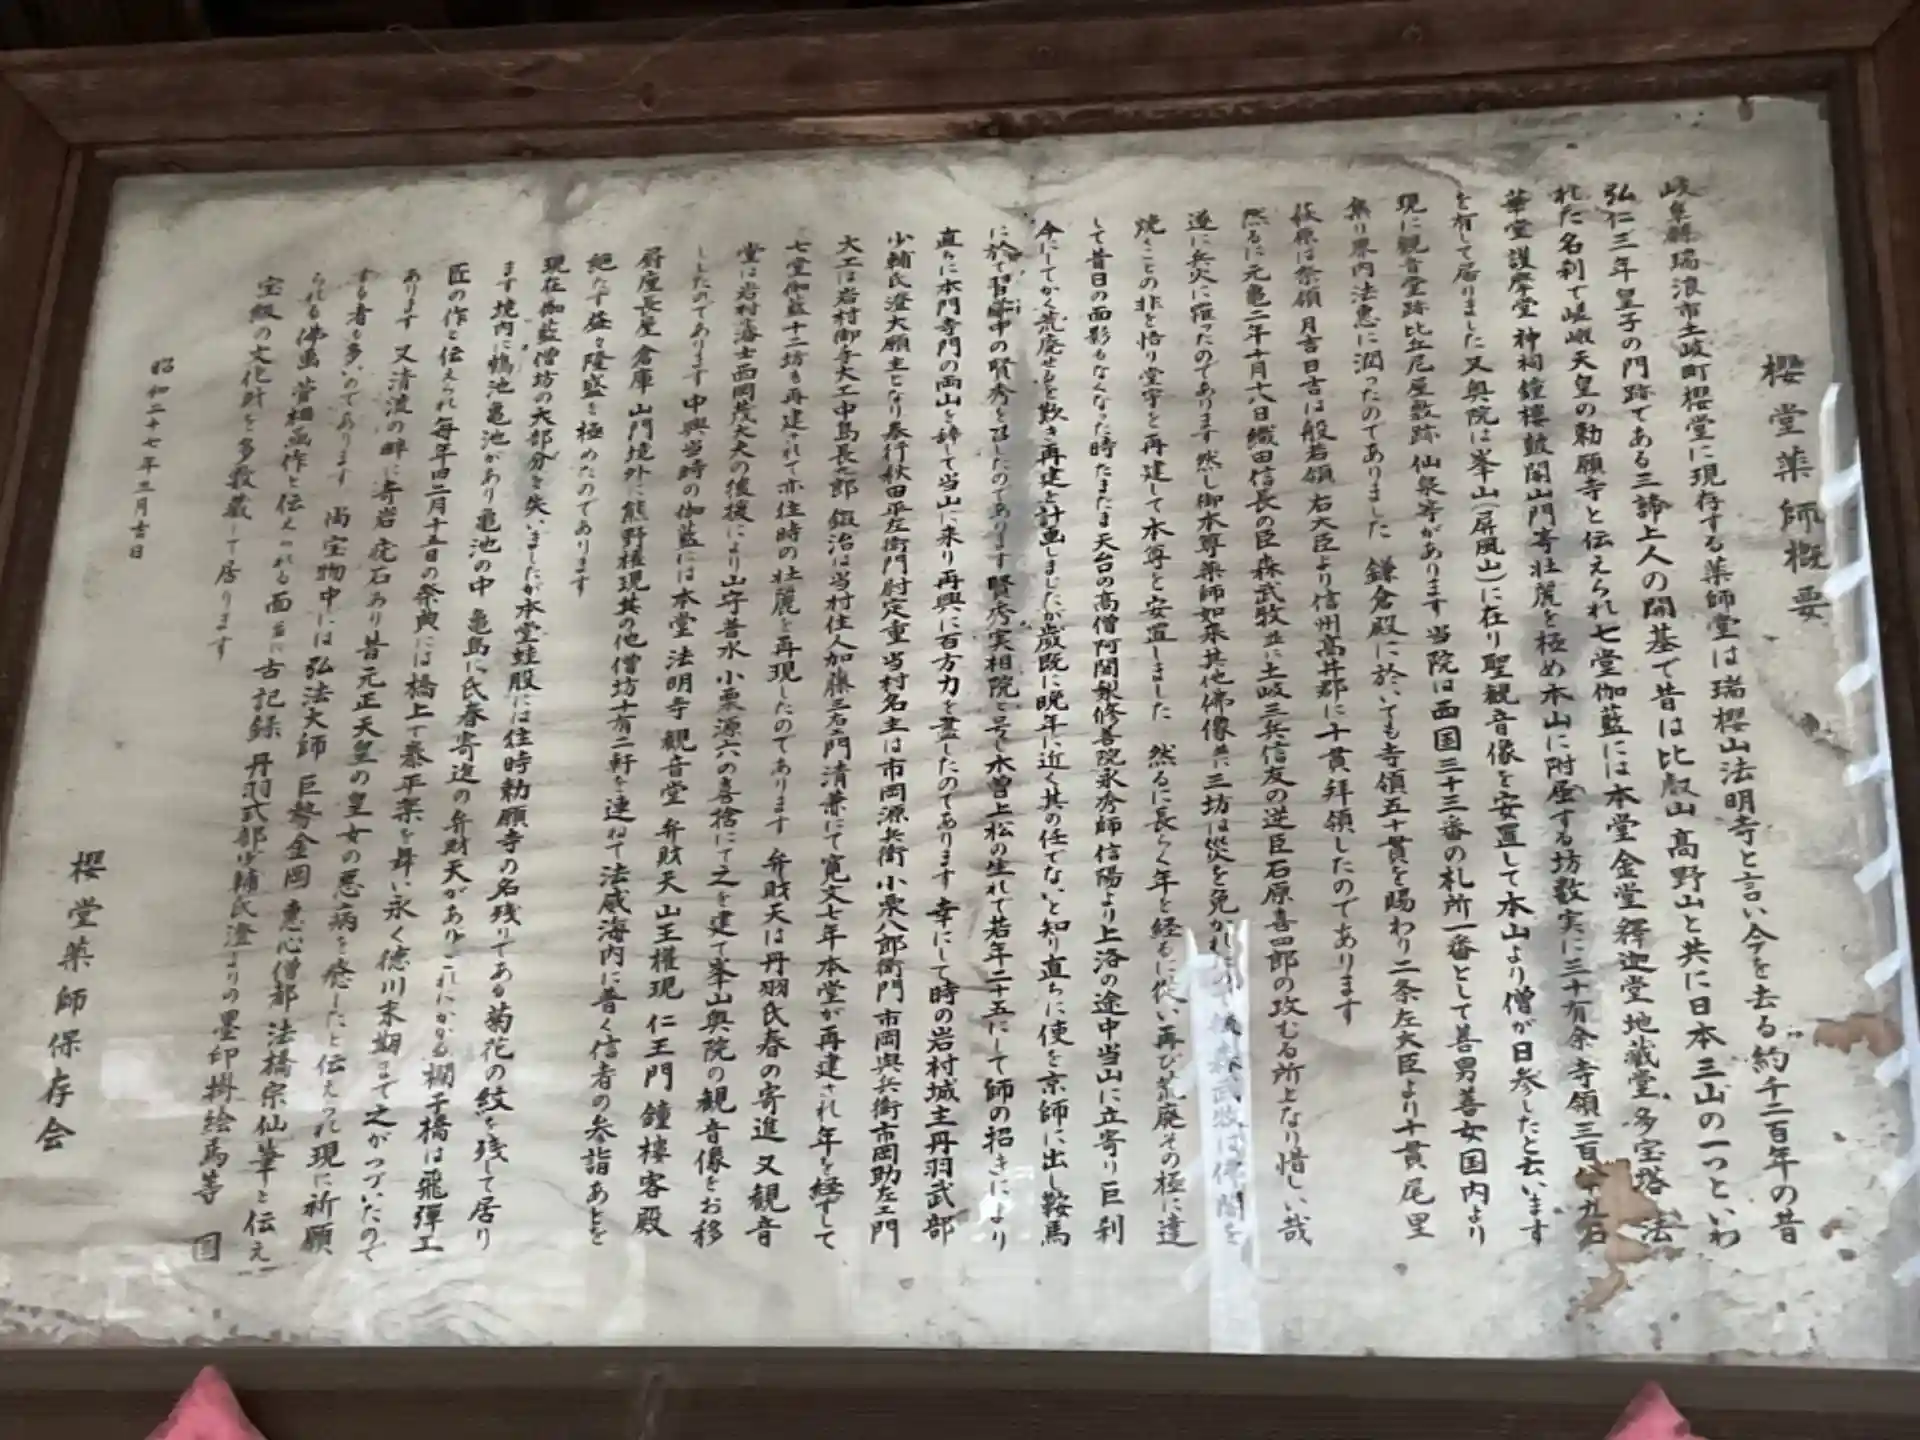 櫻堂薬師概要
岐阜縣瑞浪市土岐町櫻堂に現存する薬師堂は瑞櫻山法明寺と言い今を去る約千二百年の昔
弘仁三年皇子の門跡である三諦上人の開基で昔は比叡山高野山と共に日本三山の一つといわ
れた名刹で嵯峨天皇の勅願寺と伝えられ七堂伽藍には本堂金堂釋迦堂地蔵堂多宝塔法
華堂護摩堂神祠鐘樓鼓閣山門等壮麗を極め本山に附属する坊数実に三十有余寺領三百
を有して居りました又奥院は峯山(屏風山)に在り聖観音像を安置して本山より僧が日参したと云います
現に観音堂跡比丘尼屋敷跡仙泉等があります当院は西国三十三番の札所一番として善男善女国内より
集り界内法恵に潤ったのでありました 鎌倉殿に於いても寺領五十貫を賜わり二条左大臣より十貫尾里
萩原は祭領月吉日吉は般若領右大臣より信州高井郡に十貫拝領したのであります
然るに元亀二年十月十八日織田信長の臣森武牧並に土岐三兵信友の逆臣石原喜四郎の攻むる所となり惜しい哉
遂に兵火に罹ったのであります然し御本尊薬師如来其他佛像共に三坊は災を免かれ 森武牧は佛閣を
焼きことの非を悟り堂宇を再建して本尊を安置しました 然るに長らく年を経るに従い再び荒廃その極に達
して昔日の面影もなくなった時たまたま天台の高僧阿闍梨修善院永秀師信陽より上洛の途中当山に立寄り巨刹
今にしてかく荒廃せるを歎き再建を計画しましたが歳既に晩年に近く其の任でないと知り直ちに使を京師に出し鞍馬
に於て習学中の賢秀を召したのであります賢秀実相院と号し木曽上松の生れで若年二十五にして師の招きにより
直ちに本門寺門の両山を辞して当山に来り再興に百方力を盡したのであります幸にして時の岩村城主丹羽式部
少輔氏澄大願主となり奉行秋田平左衛門尉定重当村名主は市岡源兵衛小栗八郎衛門市岡與兵衛市岡助左ヱ門
大工は岩村御手大工中島長郎鍛治は当村住人加藤三右ヱ門清兼にて寛文七年本堂が再建され年を経して
七堂伽藍十二坊も再建されて亦往時の壮麗を再現したのであります 弁財天は丹羽氏春の寄進又観音
堂は岩村藩士西岡茂丈夫の後援により山守昔水小栗源六の喜捨にて之を建て峯山奥院の観音像をお移
ししたのであります中興当時の伽藍には本堂法明寺観音堂弁財天山王權現仁王門鐘樓客殿
厨座長屋倉庫山門境外に熊野權現其の他僧坊十有二軒を連ねて法威海内に普く信者の参詣あとを
絶たず益々隆盛を極めたのであります
現在伽藍僧坊の大部分を失いましたが本堂蛙股には往時勅願寺の名残りである菊花の紋を残して居り
ます境内に鴨池亀池があり亀池の中亀島に氏春寄進の弁財天がありこれにかかる欄干橋は飛彈工
匠の作と伝えられ毎年四二月十五日の祭典には橋上で泰平楽を舞い永く徳川末期まで之がつづいたので
あります又清流の畔に寄岩疣石あり昔元正天皇の皇女の悪病を癒したと伝えられ現に祈願
する者も多いのであります 尚宝物中には弘法大師巨勢金岡恵心僧都法橋宗仙筆と伝え
られる佛画菅相画作と伝えられる面並に古記録丹羽式部少輔氏澄よりの墨印掛絵馬等国
宝級の文化財を多数蔵して居ります
昭和二十七年三月吉日
櫻堂薬師保存会